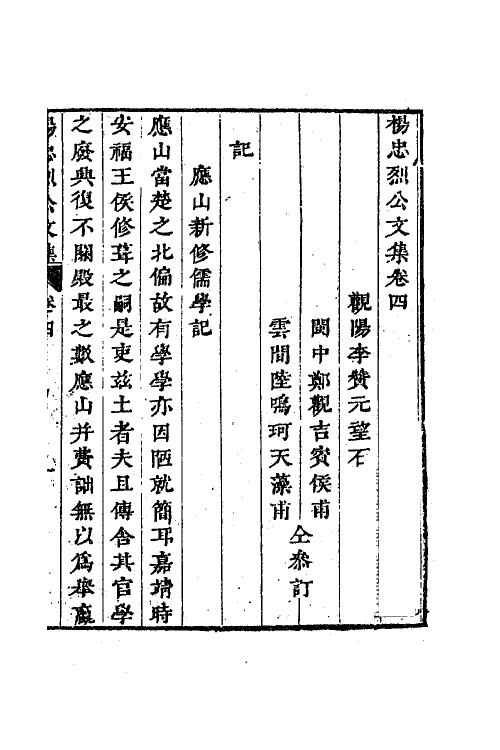 楊忠烈公文集卷四
觀陽李贊元望石
閩中鄭觀吉賓侯甫
雲間陸鳴珂天藻甫
仝參訂
記
應山新修儒學記
應山當楚之北偏故有學學亦因陋就簡耳嘉靖時
安福王侯修葺之嗣是吏兹土者夫且傳舍其官學
之廢興復不關殿最之數應山并費詘無以爲舉羸
楊忠烈公文集
卷四